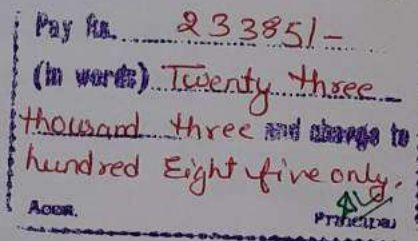 Pay Rs. 23385/-
(In words) Twenty three
thousand three and charge to
hundred Eight five only.
Accn. Principal